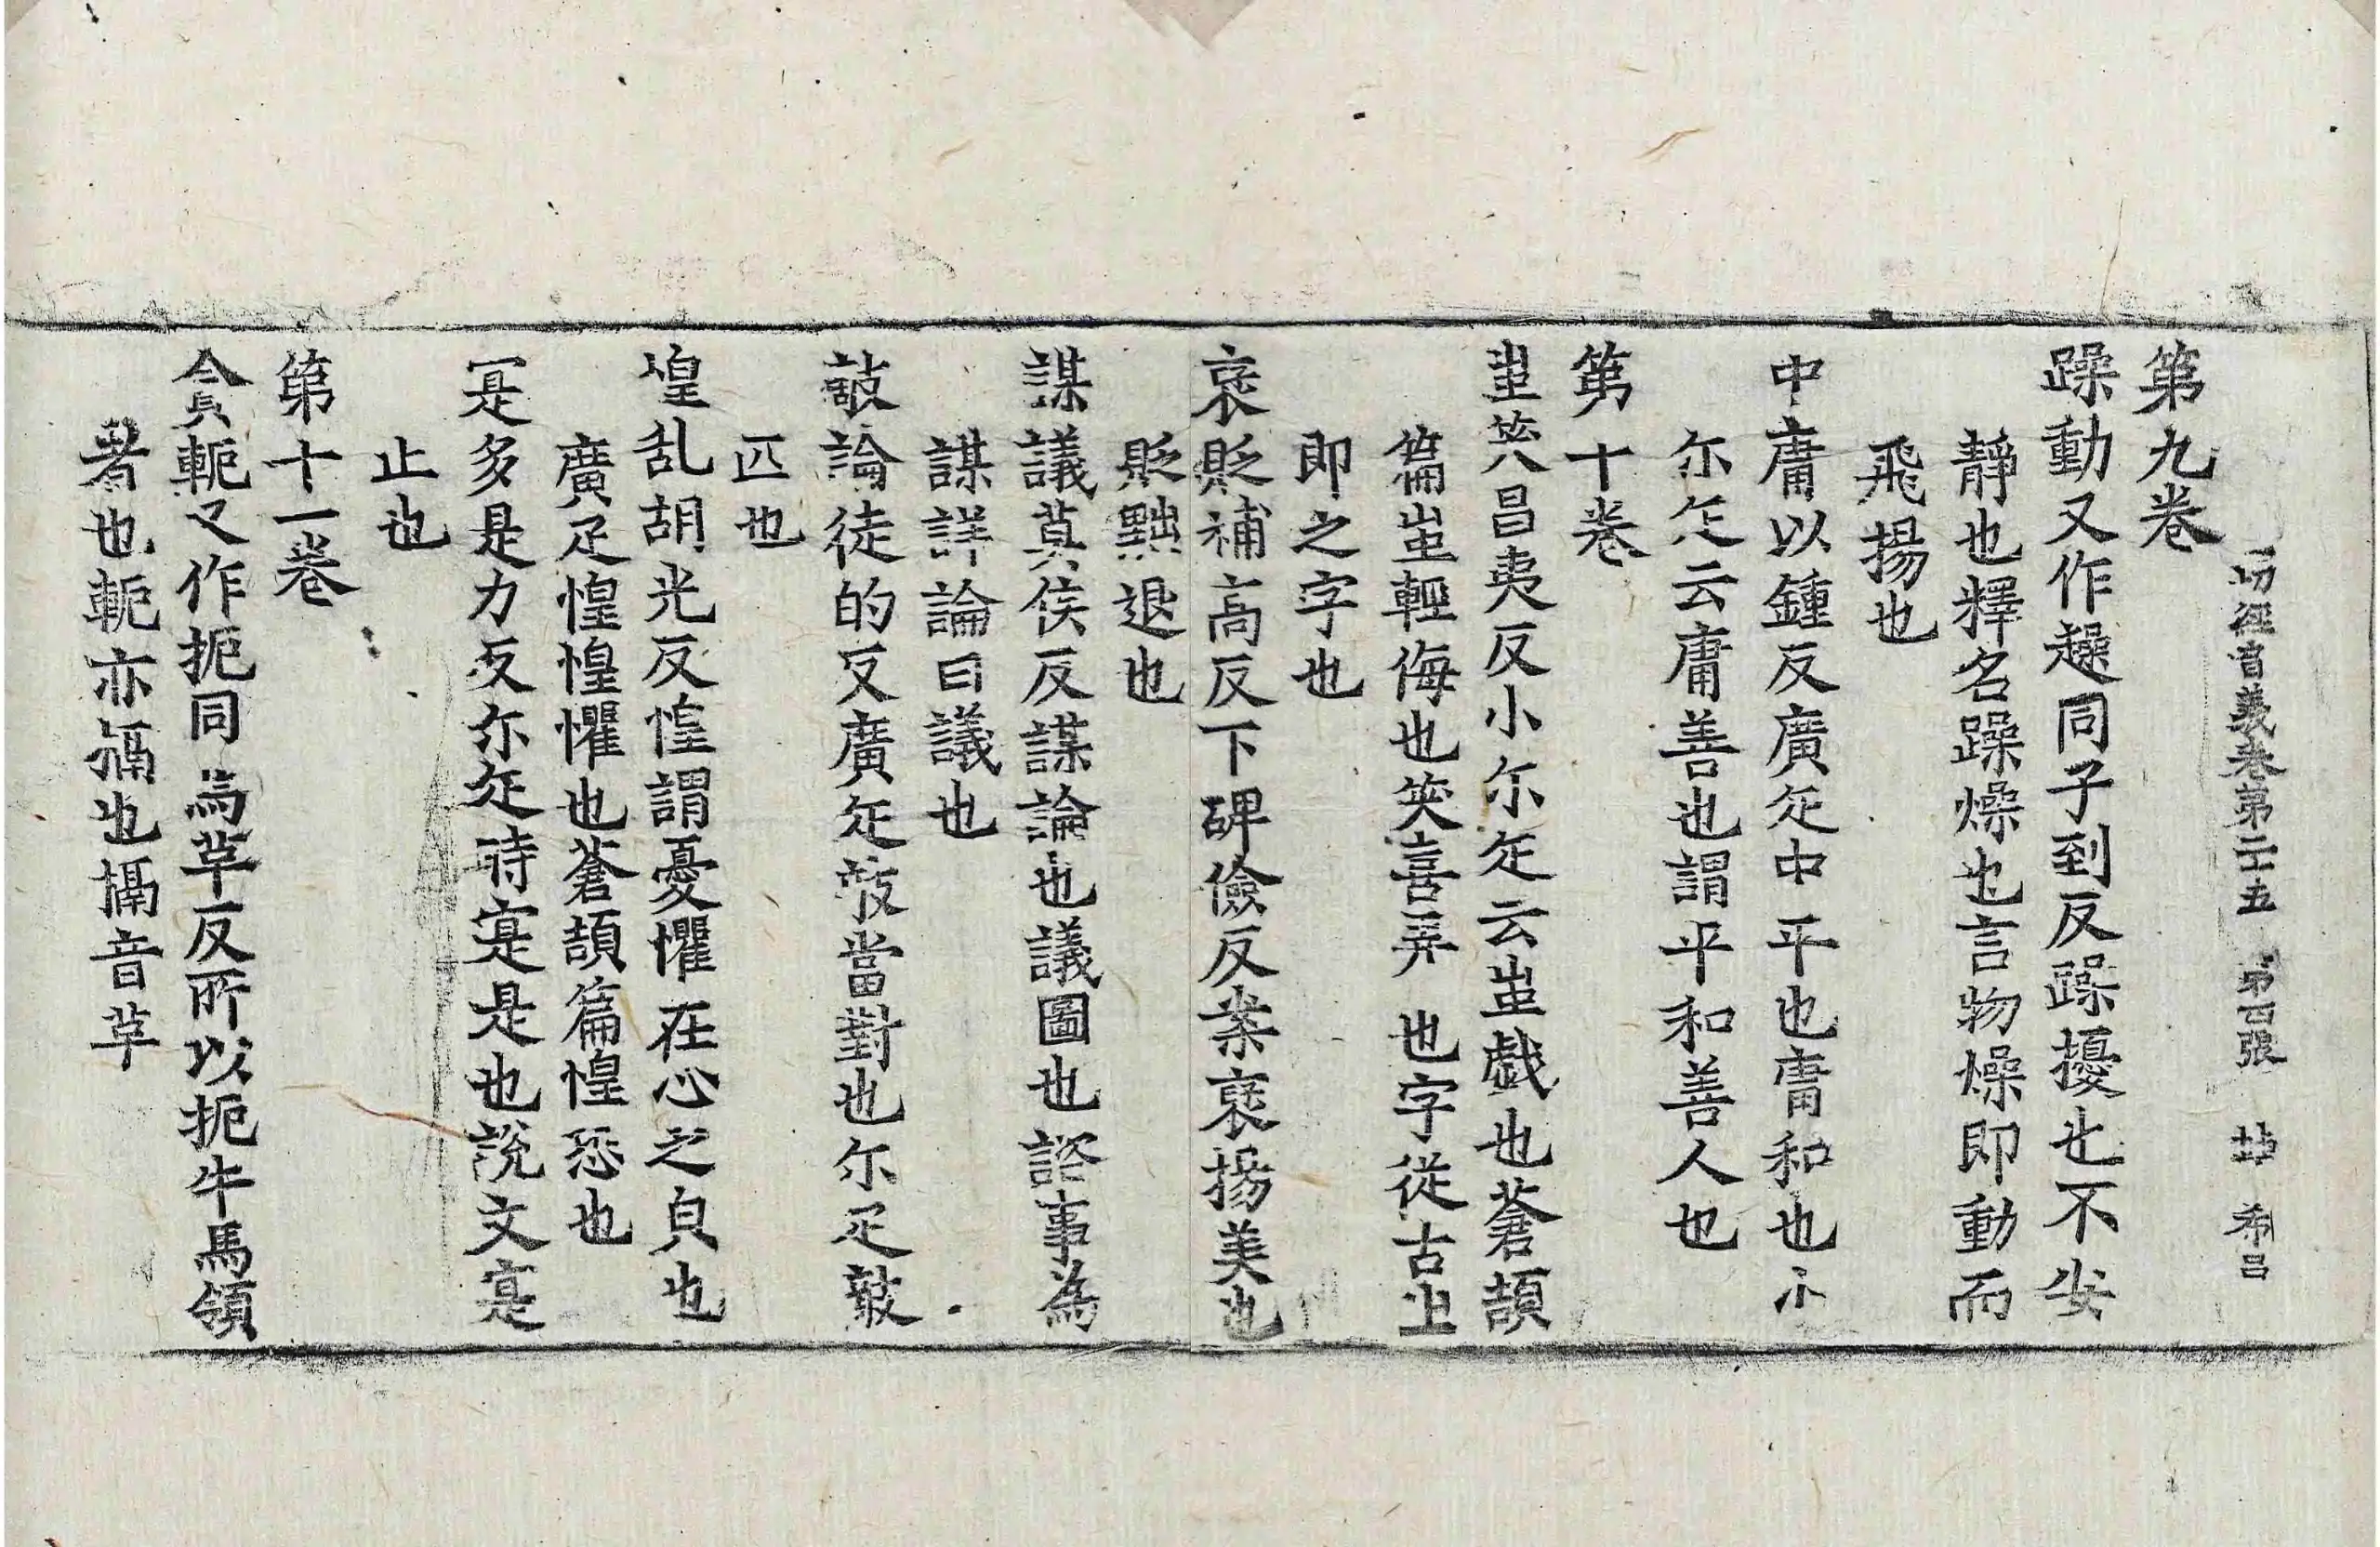 一切經音義卷第二十五 第四張 希呂
第九卷
躁動又作趮同子到反躁擾也不安
靜也釋名躁燥也言物燥即動而
飛揚也
中庸以鍾反廣疋中平也庸和也小
尒疋云庸善也謂平和善人也
第十卷
蚩笑昌夷反小尒疋云蚩戯也蒼頡
篇蚩輕侮也笑喜弄也字從古㞢
即之字也
裦貶補高反下碑儉反案裦揚美也
貶黜退也
謀議莫侯反謀論也議圖也諮事為
謀詳論曰議也
敵論徒的反廣疋敵當對也尒疋敵
匹也
惶乱胡光反惶謂憂懼在心之皃也
廣疋惶惶懼也蒼頡篇惶恐也
寔多是力反尒疋時寔是也說文寔
止也
第十一卷
貪軛又作扼同焉革反所以扼牛馬領
者也軛亦搹也搹音革